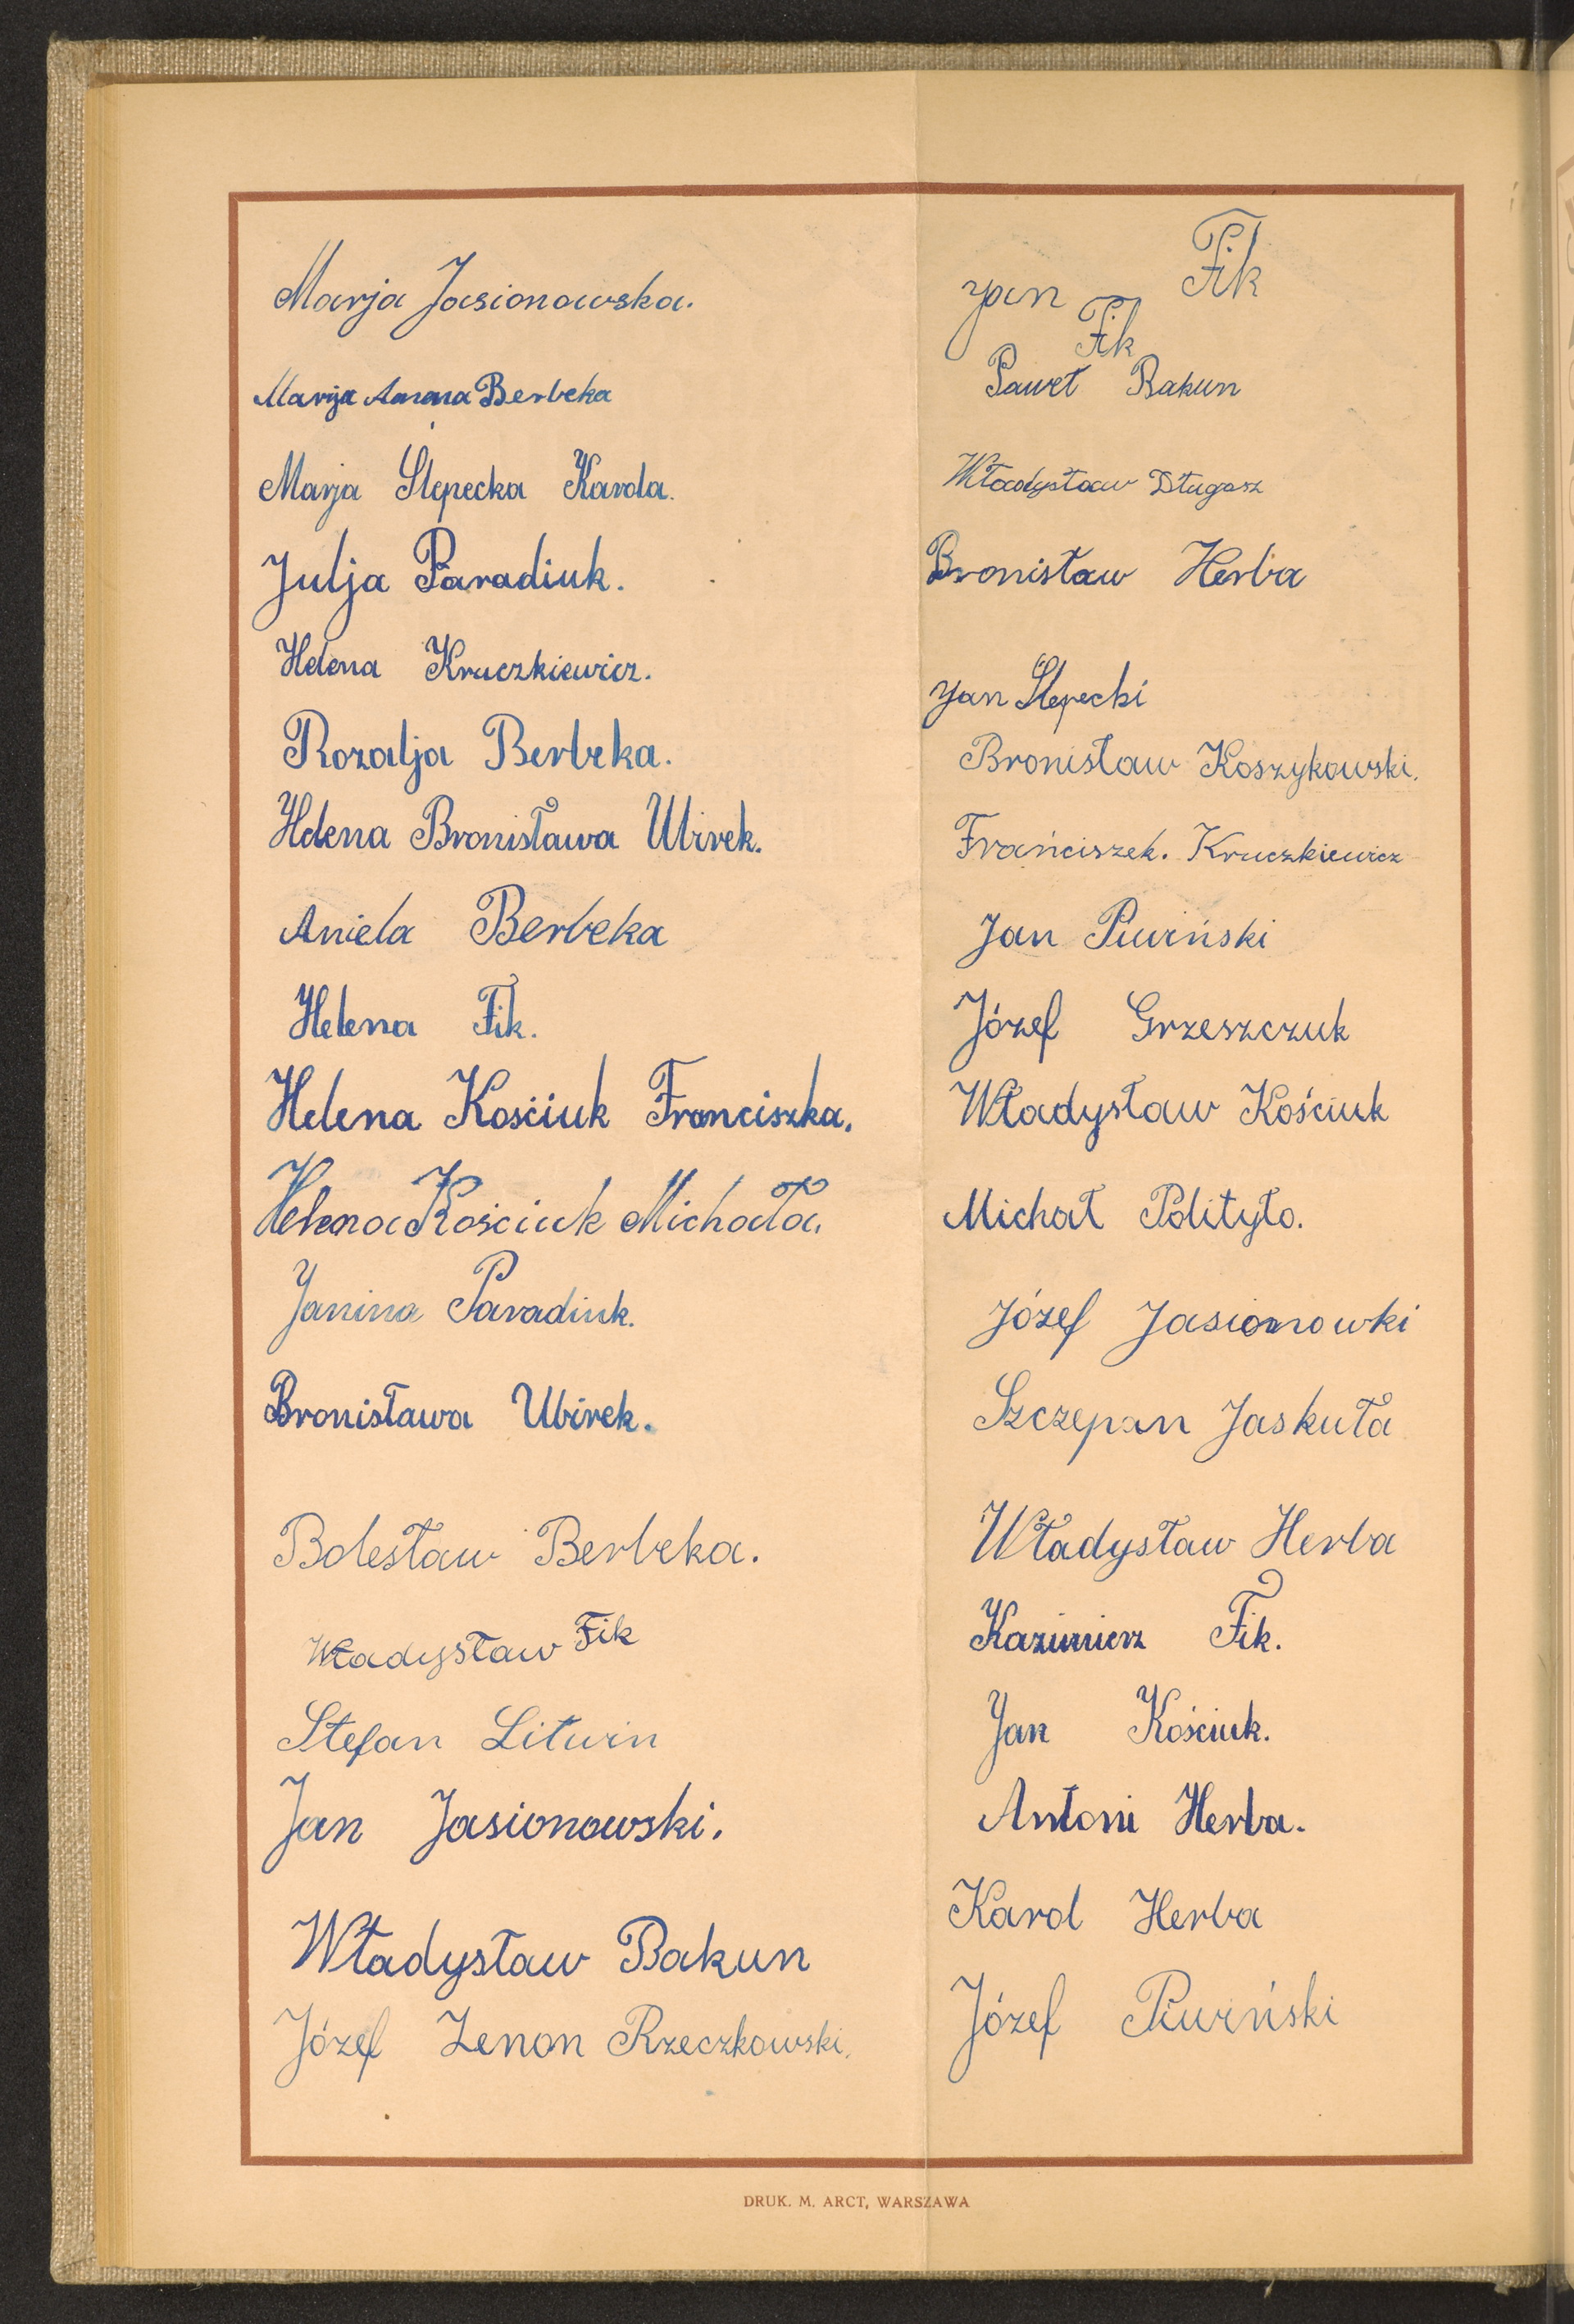 Marja Jasionowska.
Marija Anna Berbeka
Marja Ślepecka Karola.
Julja Paradiuk.
Helena Kruczkiewicz.
Rozalja Berbeka.
Helena Bronisława Ubirek.
Aniela Berbeka
Helena Fik.
Helena Kościuk Franciszka.
Helena Kościuk Michała.
Janina Paradiuk.
Bronisława Ubirek.
Bolesław Berbeka.
Władysław Fik
Stefan Litwin
Jan Jasionowski.
Władysław Bakun
Józef Zenon Rzeczkowski.
Jan Fik
Fik
Paweł Bakun
Władysław Długosz
Bronisław Herba
Jan Ślepecki
Bronisław Koszykowski.
Frańciszek. Kruczkiewicz
Jan Piwiński
Józef Grzeszczuk
Władysław Kościuk
Michał Polityło.
Józef Jasionowki
Szczepan Jaskuła
Władysław Herba
Kazimierz Fik.
Jan Kościuk.
Antoni Herba.
Karol Herba
Józef Piwiński
DRUK. M. ARCT, WARSZAWA